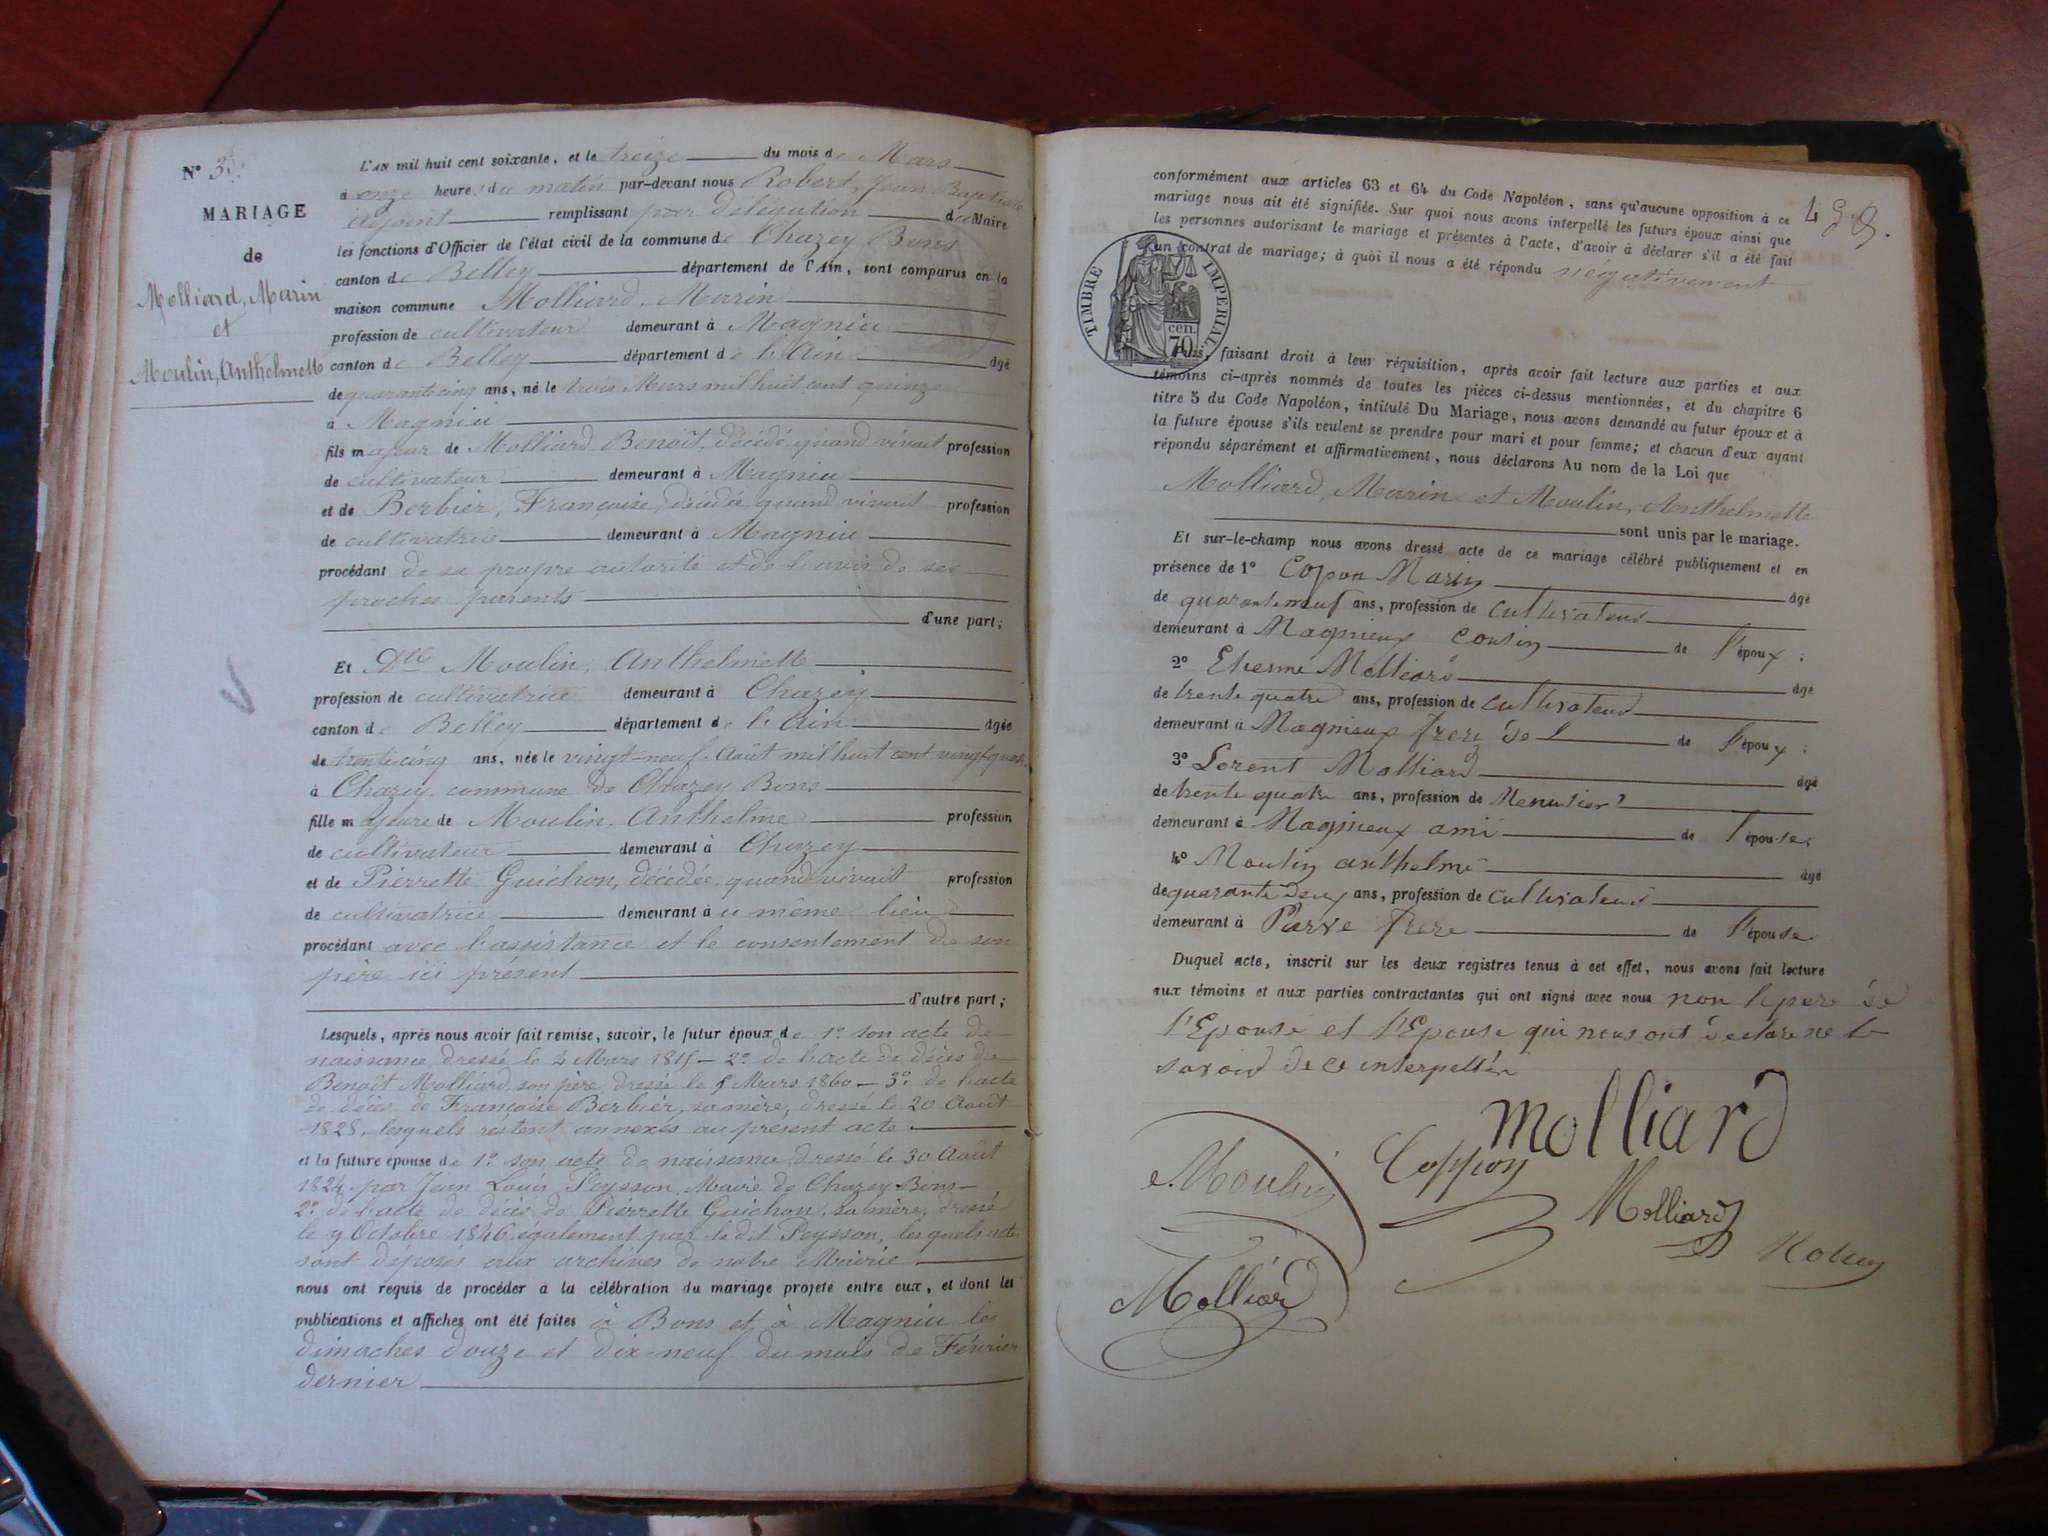 N° 3.
MARIAGE
de
Molliard, Marin
et
Moulin, Anthelmette
L'AN mil huit cent soixante, et le treize du mois de Mars
à onze heures du matin par-devant nous Robert, Jean Baptiste
adjoint remplissant par délégation du Maire
les fonctions d'Officier de l'état civil de la commune de Chazey Bons
canton de Belley département de l'Ain, sont comparus en la
maison commune Molliard, Marin
profession de cultivateur demeurant à Magnieu
canton de Belley département de l'Ain âgé
de quarante cinq ans, né le trois Mars mil huit cent quinze
à Magnieu
fils majeur de Molliard Benoît, décédé, quand vivait profession
de cultivateur demeurant à Magnieu
et de Berbier, Françoise, décédée, quand vivait profession
de cultivatrice demeurant à Magnieu
procédant de sa propre autorité et de l'avis de ses
proches parents
d'une part;
Et Dlle Moulin, Anthelmette
profession de cultivatrice demeurant à Chazey
canton de Belley département de l'Ain âgée
de trente cinq ans, née le vingt-neuf Août mil huit cent vingt quatre
à Chazey commune de Chazey Bons
fille majeure de Moulin, Anthelme profession
de cultivateur demeurant à Chazey
et de Pierrette Guichon, décédée, quand vivait profession
de cultivatrice demeurant au même lieu
procédant avec l'assistance et le consentement de son
père ici présent
d'autre part;
Lesquels, après nous avoir fait remise, savoir, le futur époux de 1° son acte de
naissance dressé le 4 Mars 1815 - 2° de l'acte de décès de
Benoît Molliard son père, dressé le Mars 1860 - 3° de l'acte
de décès de Françoise Berbier, sa mère, dressé le 20 Août
1828, lesquels restent annexés au présent acte
et la future épouse de 1° son acte de naissance dressé le 30 Août
1824 par Jean Louis Peysson, Maire de Chazey-Bons -
2° de l'acte de décès de Pierrette Guichon, sa mère, dressé
le 9 Octobre 1846 également par le dit Peysson, lesquels actes
sont déposés aux archives de notre Mairie
nous ont requis de procéder à la célébration du mariage projeté entre eux, et dont les
publications et affiches ont été faites à Bons et à Magnieu les
dimaches douze et dix-neuf du mois de Février
dernier
conformément aux articles 63 et 64 du Code Napoléon, sans qu'aucune opposition à ce
mariage nous ait été signifiée. Sur quoi nous avons interpellé les futurs époux ainsi que
les personnes autorisant le mariage et présentes à l'acte, d'avoir à déclarer s'il a été fait
un contrat de mariage; à quoi il nous a été répondu négativement
TIMBRE IMPERIAL
cen.
70
Puis, faisant droit à leur réquisition, après avoir fait lecture aux parties et aux
témoins ci-après nommés de toutes les pièces ci-dessus mentionnées, et du chapitre 6
titre 5 du Code Napoléon, intitulé Du Mariage, nous avons demandé au futur époux et à
la future épouse s'ils veulent se prendre pour mari et pour femme; et chacun d'eux ayant
répondu séparément et affirmativement, nous déclarons Au nom de la Loi que
Molliard, Marin et Moulin, Anthelmette
sont unis par le mariage.
Et sur-le-champ nous avons dressé acte de ce mariage célébré publiquement et en
présence de 1° Copon Marin âgé
de quarante neuf ans, profession de cultivateur
demeurant à Magnieux cousin de l'époux;
2° Etienne Molliard âgé
de trente quatre ans, profession de cultivateur
demeurant à Magnieux frere de l de l'époux;
3° Lorent Molliard âgé
de trente quatre ans, profession de Menusier
demeurant à Magnieux ami de l'épouse;
4° Moulin anthelme âgé
de quarante deux ans, profession de cultivateur
demeurant à Parve frere de l'épouse.
Duquel acte, inscrit sur les deux registres tenus à cet effet, nous avons fait lecture
aux témoins et aux parties contractantes qui ont signé avec nous non le pere de
l'Epouse et l'Epouse qui nous ont declare ne le
savoir de ce interpellés
molliard
Moulin
Coppon
Molliard
Molliard